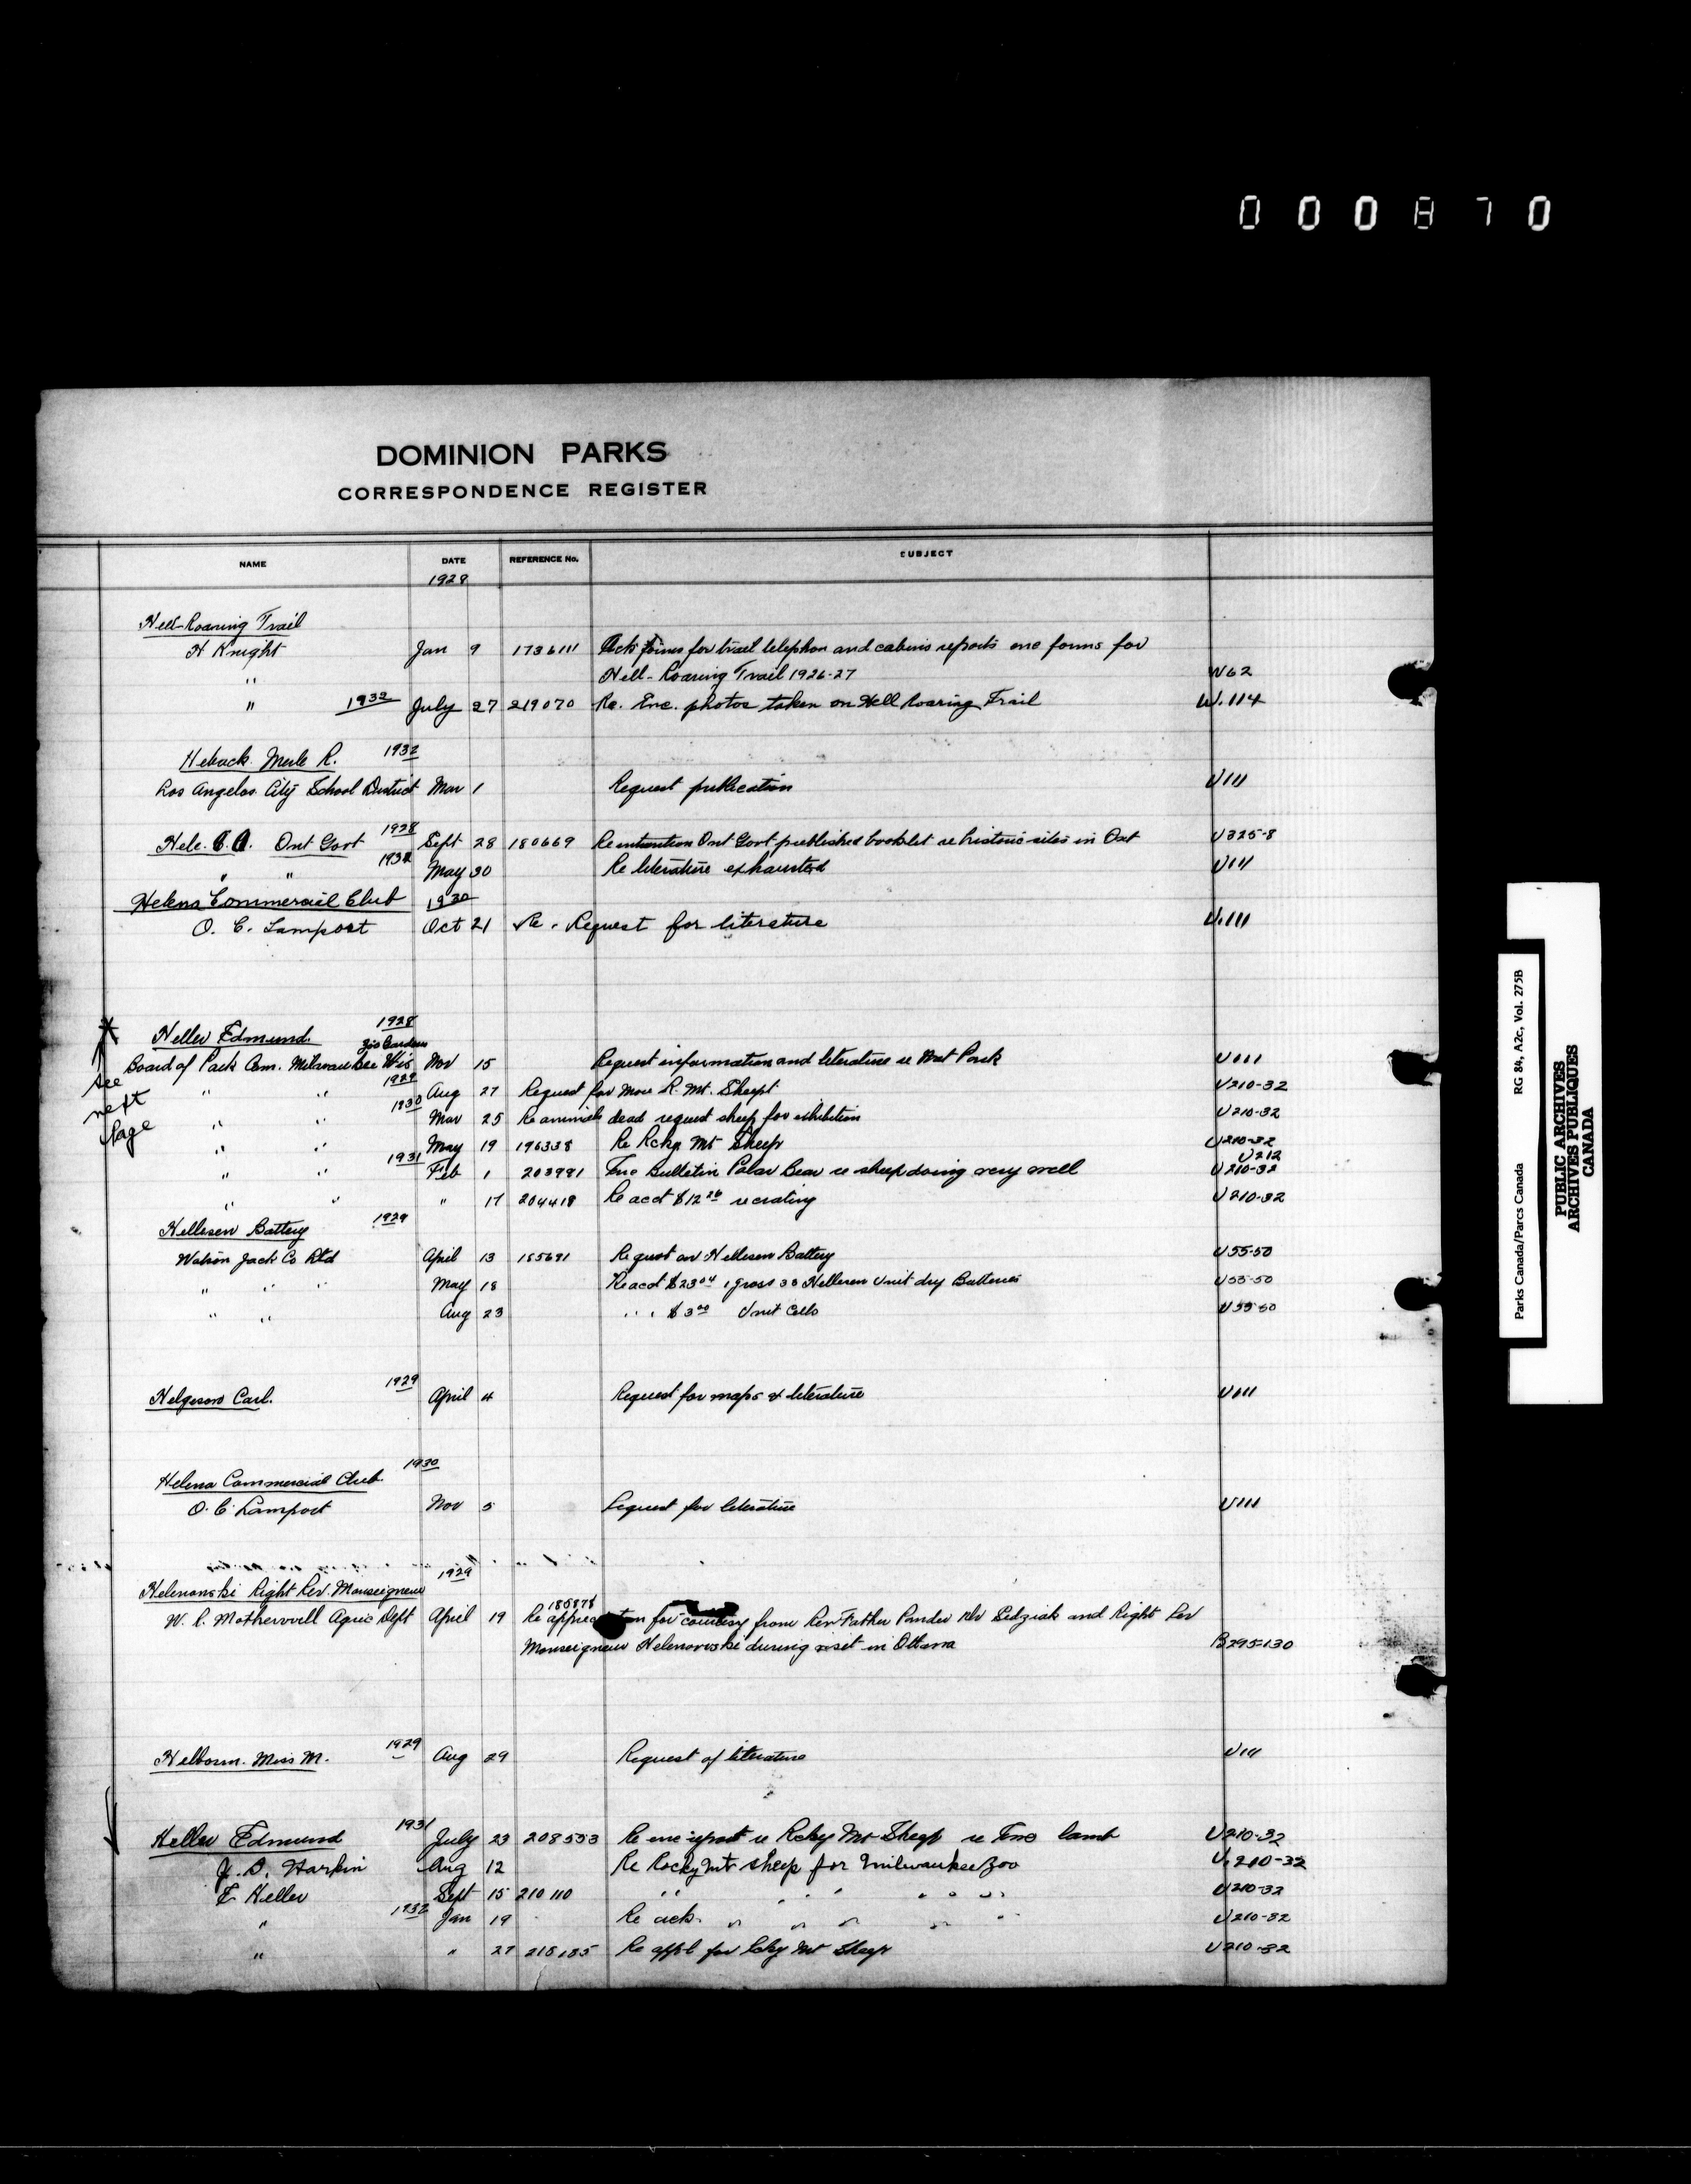 000870
DOMINION PARKS
CORRESPONDENCE REGISTER
NAME DATE REFERENCE No. SUBJECT
1928
Hell-Roaring Trail
H Knight Jan 9 1736111 Ack forms for trail telephon and cabins reports enc forms for
" Hell-Roaring Trail 1926-27 W62
" 1932 July 27 219070 Re. Enc. photos taken on Hell Roaring Trail W.114
Heback Merle R. 1932
Los Angelos City School District Mar 1 Request publication U111
Hele. C.A. Ont Govt 1928 Sept 28 180669 Re intention Ont Govt published booklet re historic sites in Ont U325-8
" " 1932 May 30 Re literature exhausted U111
Helena Commercial Club 1930
O. C. Lamport Oct 21 Re. Request for literature U.111
Heller Edmund. 1928
Zoo Gardens
Board of Park Com. Milwaukee Wis Nov 15 Request information and literature re Nat Park U111
" " 1929 Aug 27 Request for more R. Mt. Sheep U210-32
" " 1930 Mar 25 Re animals dead request sheep for exhibition U210-32
" " May 19 196338 Re Rcky Mt Sheep U210-32
U212
" " 1931 Feb 1 203981 Enc Bulletin Polar Bear re sheep doing very well U210-32
" " " 17 204418 Re acct $12 re crating U210-32
* see next Page
Hellesen Battery 1929
Watson Jack Co Ltd April 13 185691 Re quot on Hellesen Battery U55-50
" " " May 18 Re acct $23.04 1 gross 30 Hellesen Unit dry Batteries U55-50
" " Aug 23 " " $3.00 Unit Cells U55-50
Helgeson Carl. 1929 April 4 Request for maps & literature U111
Helena Commercial Club. 1930
O. C. Lamport Nov 5 Request for literature U111
1929
Helenonski Right Rev. Monseigneur
185878
W. R. Motherwell Agric Dept April 19 Re appreciation for courtesy from Rev Father Ponder Rev Sedziak and Right Rev
Monseigneur Helenowski during visit in Ottawa B295-130
Helborn. Miss M. 1929 Aug 29 Request of literature U111
Heller Edmund 1931 July 23 208553 Re enc report re Rcky Mt Sheep re Enc lamb U210-32
J. B. Harkin Aug 12 Re Rocky Mt sheep for Milwaukee Zoo U.210-32
E Heller Sept 15 210110 " " " " " " U210-32
" 1932 Jan 19 Re ack. " " " " " U210-32
" " 27 215185 Re appl for Rcky Mt Sheep U210-32
Parks Canada/Parcs Canada RG 84, A2c, Vol. 275B
PUBLIC ARCHIVES
ARCHIVES PUBLIQUES
CANADA